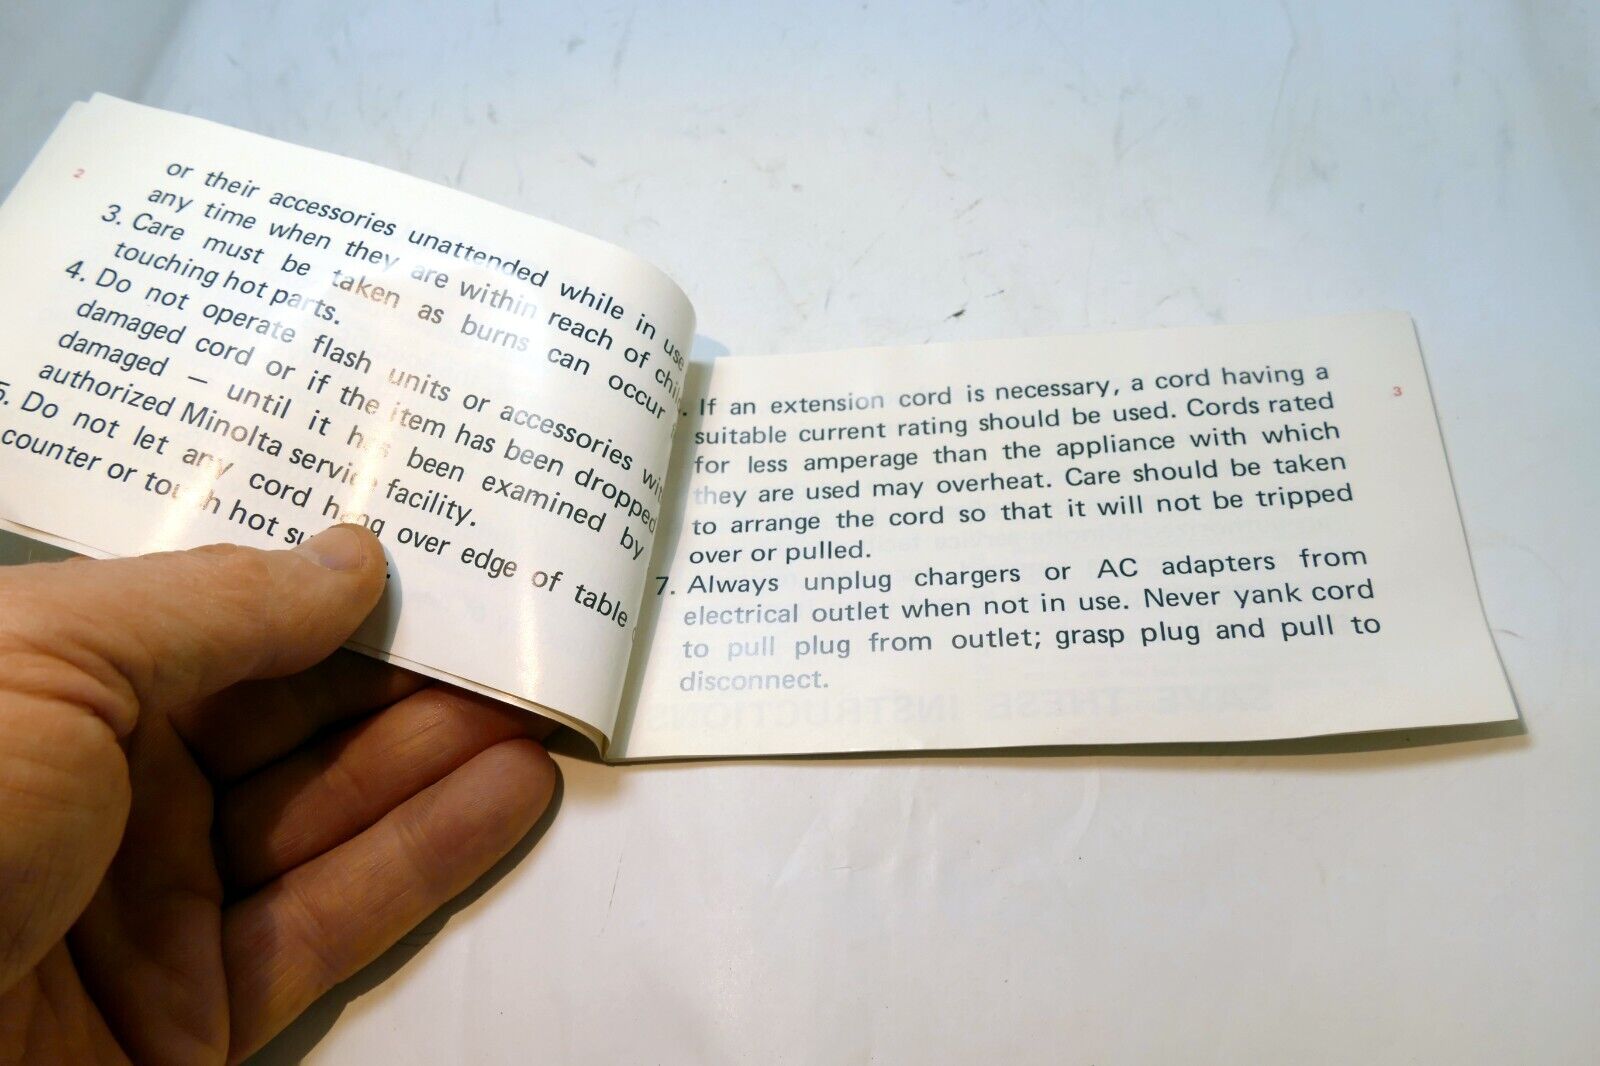 2
or their accessories unattended while in use
any time when they are within reach of
3. Care must be taken as burns can occur
touching hot parts.
4. Do not operate flash units or accessories
damaged cord or if the item has been dropped
damaged — until it has been examined by
authorized Minolta service facility.
5. Do not let any cord hang over edge of table
counter or touch hot
3
If an extension cord is necessary, a cord having a
suitable current rating should be used. Cords rated
for less amperage than the appliance with which
they are used may overheat. Care should be taken
to arrange the cord so that it will not be tripped
over or pulled.
7. Always unplug chargers or AC adapters from
electrical outlet when not in use. Never yank cord
to pull plug from outlet; grasp plug and pull to
disconnect.
SAVE THESE INSTRUCTIONS